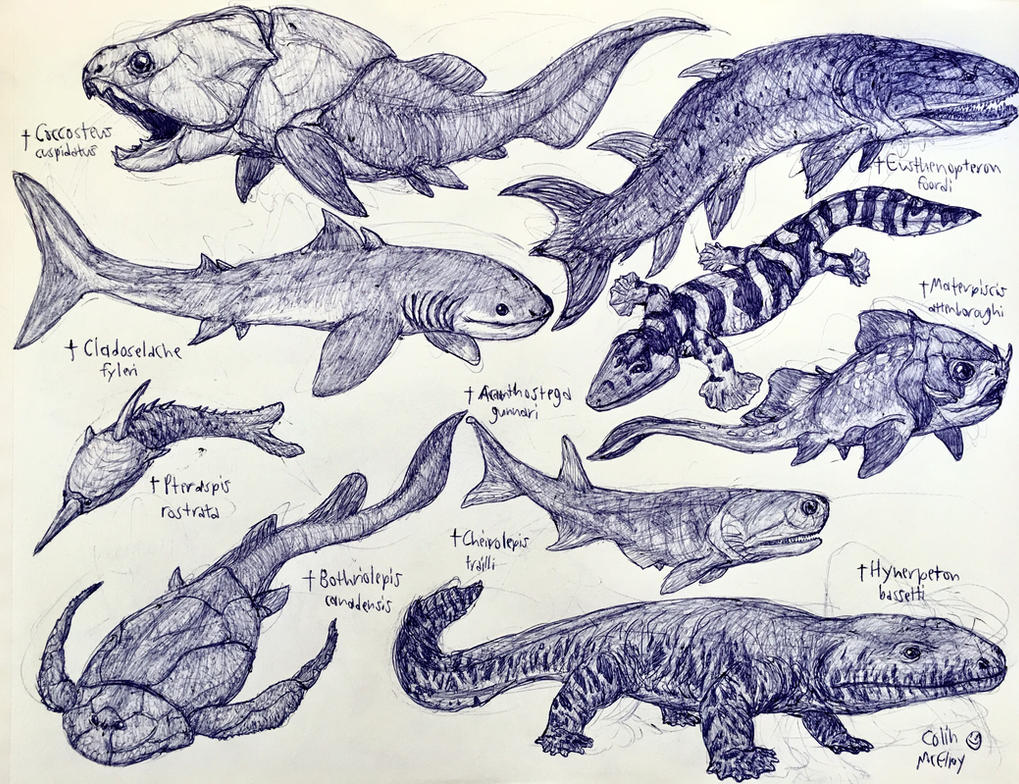 † Coccosteus
cuspidatus
† Eusthenopteron
foordi
† Materpiscis
attenboroughi
† Cladoselache
fyleri
† Acanthostega
gunnari
† Pteraspis
rostrata
† Cheirolepis
trailli
† Bothriolepis
canadensis
† Hynerpeton
bassetti
Colin
McElroy